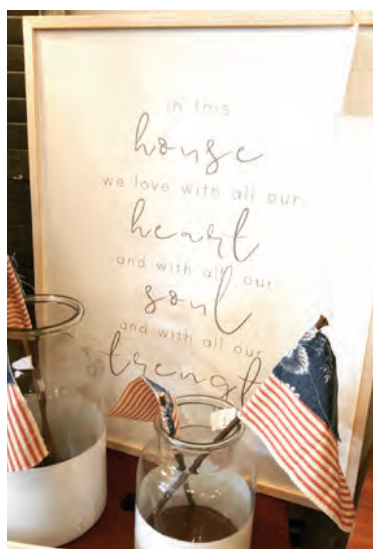 in this
house
we love with all our
heart
and with all our
soul
and with all our
trengt